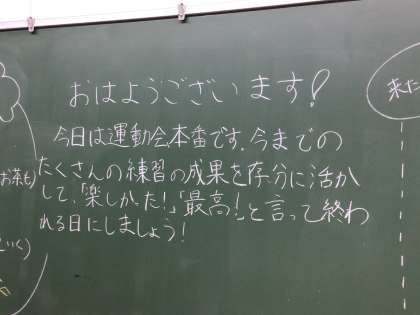 おはようございます!
今日は運動会本番です。今までの
たくさんの練習の成果を存分に活か
して、「楽しかった!」「最高!」と言って終わ
れる日にしましょう!
お茶も)
来た